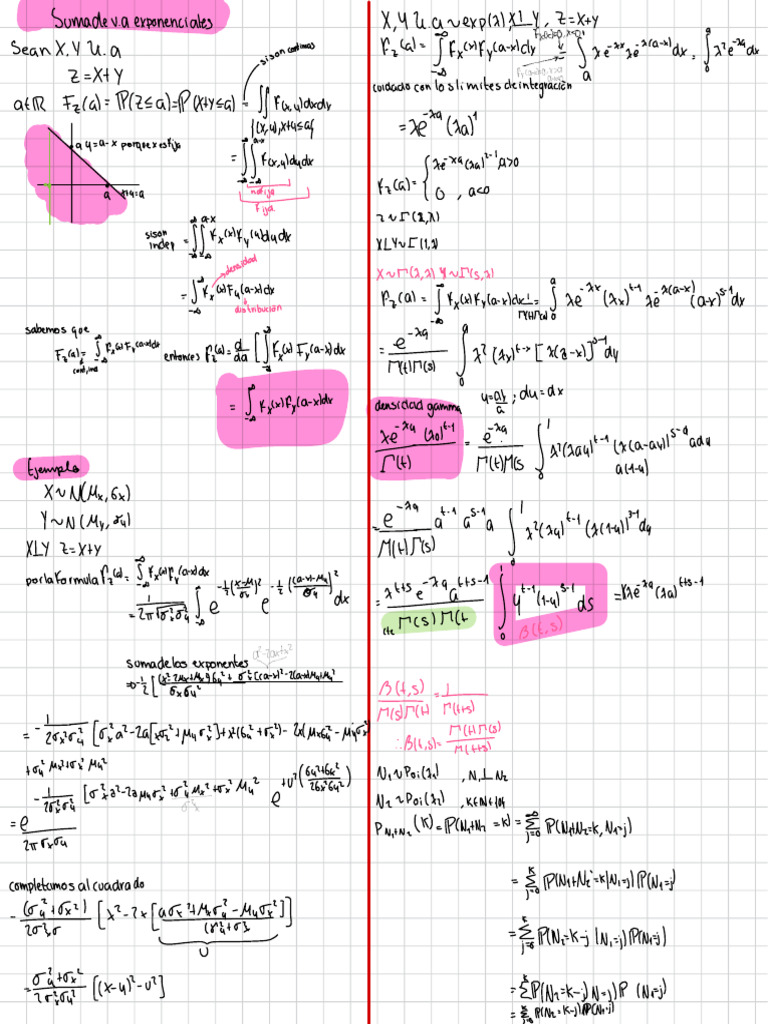 Suma de v.a exponenciales
Sean X,Y u.a
Z=X+Y
si son continuas
a∈ℝ F_Z(a) = ℙ(Z≤a) = ℙ(X+Y≤a) = ∬ f(x,y)dxdy
{(x,y), x+y≤a}
y=a-x porque x es fija
a
x+y=a
= ∫_{-∞}^{∞} ∫_{-∞}^{a-x} f(x,y)dydx
no fija
fija
si son indep = ∫_{-∞}^{∞} ∫_{-∞}^{a-x} f_X(x)f_Y(y)dydx
densidad
= ∫_{-∞}^{∞} f_X(x)F_Y(a-x)dx
distribución
sabemos que
F_Z(a) = ∫_{-∞}^{∞} f_X(x)F_Y(a-x)dx entonces f_Z(a) = d/da [∫_{-∞}^{∞} f_X(x)F_Y(a-x)dx
cont, ind
= ∫_{-∞}^{∞} f_X(x)f_Y(a-x)dx
Ejemplo
X∼N(μ_x, σ_x)
Y∼N(μ_y, σ_y)
X⊥Y Z=X+Y
por la formula f_Z(a) = ∫_{-∞}^{∞} f_X(x)f_Y(a-x)dx
= 1/(2π√(σ_x²σ_y²)) ∫_{-∞}^{∞} e^{-1/2((x-μ)/σ_x)²} e^{-1/2((a-x)-μ_y/σ_y)²} dx
a²-2ax+x²
suma de los exponentes
⇒ -1/2 [((x²-2μ_x x+μ_x²)σ_y² + σ_x²[(a-x)²-2(a-x)μ_y+μ_y²)/(σ_xσ_y²)
= -1/(2σ_x²σ_y²) [σ_x²a²-2a[xσ_x²+μ_yσ_x²]+x²(σ_y²+σ_x²)-2x(μ_xσ_y²-μ_yσ_x²
+σ_y²μ_x²+σ_x²μ_y²
= e^{-1/(2σ_x²σ_y²) [σ_x²a²-2aμ_yσ_x²+σ_y²μ_x²+σ_x²μ_y²} / (2πσ_xσ_y) e^{+U²((σ_y²+σ_x²)/(2σ_x²σ_y²))}
completamos al cuadrado
-(σ_y²+σ_x²)/(2σ²σ) [x²-2x[(aσ_x²+μ_xσ_y²-μ_yσ_x²)/(σ_y²+σ_x)]]
U
= (σ_y²+σ_x²)/(2σ_x²σ_y²) [(x-u)²-u²]
X,Y u.a ∼exp(λ), X⊥Y, Z=X+Y
f_Z(a) = ∫_{-∞}^{∞} f_X(x)f_Y(a-x)dy = ∫_a λe^{-λx}λe^{-λ(a-x)}dx = ∫_0^a λ²e^{-λa}dx
cuidado con los limites de integración
= λe^{-λa}(λa)^1
f_Z(a) = { λe^{-λa}(λa)^{2-1} a>0
0, a<0
Z∼Γ(2,λ)
X⊥Y∼Γ(1,λ)
X∼Γ(t,λ) Y∼Γ(s,λ)
f_Z(a) = ∫_{-∞}^{∞} f_X(x)f_Y(a-x)dx = 1/(Γ(t)Γ(s)) ∫_0^a λe^{-λx}(λx)^{t-1} λe^{-λ(a-x)}(a-x)^{s-1}dx
= e^{-λa}/(Γ(t)Γ(s)) ∫_0^a λ²(λx)^{t-1}[λ(a-x)]^{s-1}dy
densidad gamma
u=ay/a ; du=dx
λe^{-λa}(λa)^{t-1}/Γ(t) = e^{-λa}/(Γ(t)Γ(s) ∫_0^1 λ²(λau)^{t-1}(λ(a-au)^{s-1}adu
a(1-u)
= e^{-λa}/(Γ(t)Γ(s)) a^{t-1} a^{s-1} a ∫_0^1 λ²(λu)^{t-1}(λ(1-u))^{s-1}du
= λ^{t+s}e^{-λa}a^{t+s-1}/(Γ(s)Γ(t) ∫_0^1 u^{t-1}(1-u)^{s-1}ds = Kλe^{-λa}(λa)^{t+s-1}
cte
B(t,s)
B(t,s)/(Γ(s)Γ(t) = 1/Γ(t+s)
∴B(t,s) = Γ(t)Γ(s)/Γ(t+s)
N₁∼Poi(λ₁) , N₁⊥N₂
N₂∼Poi(λ₂) , K∈N∪{0}
P_{N₁+N₂}(K) = ℙ(N₁+N₂=K) = Σ_{j=0}^{∞} ℙ(N₁+N₂=K, N₁=j)
= Σ_{j=0}^{K} ℙ(N₁+N₂=K|N₁=j)ℙ(N₁=j)
= Σ_{j=0}^{K} ℙ(N₂=K-j |N₁=j)ℙ(N₁=j)
= Σ ℙ(N₂=K-j) N=j) ℙ (N₁=j)
= Σ_{j=0}^{K} ℙ(N₂=K-j)ℙ(N₁=j)